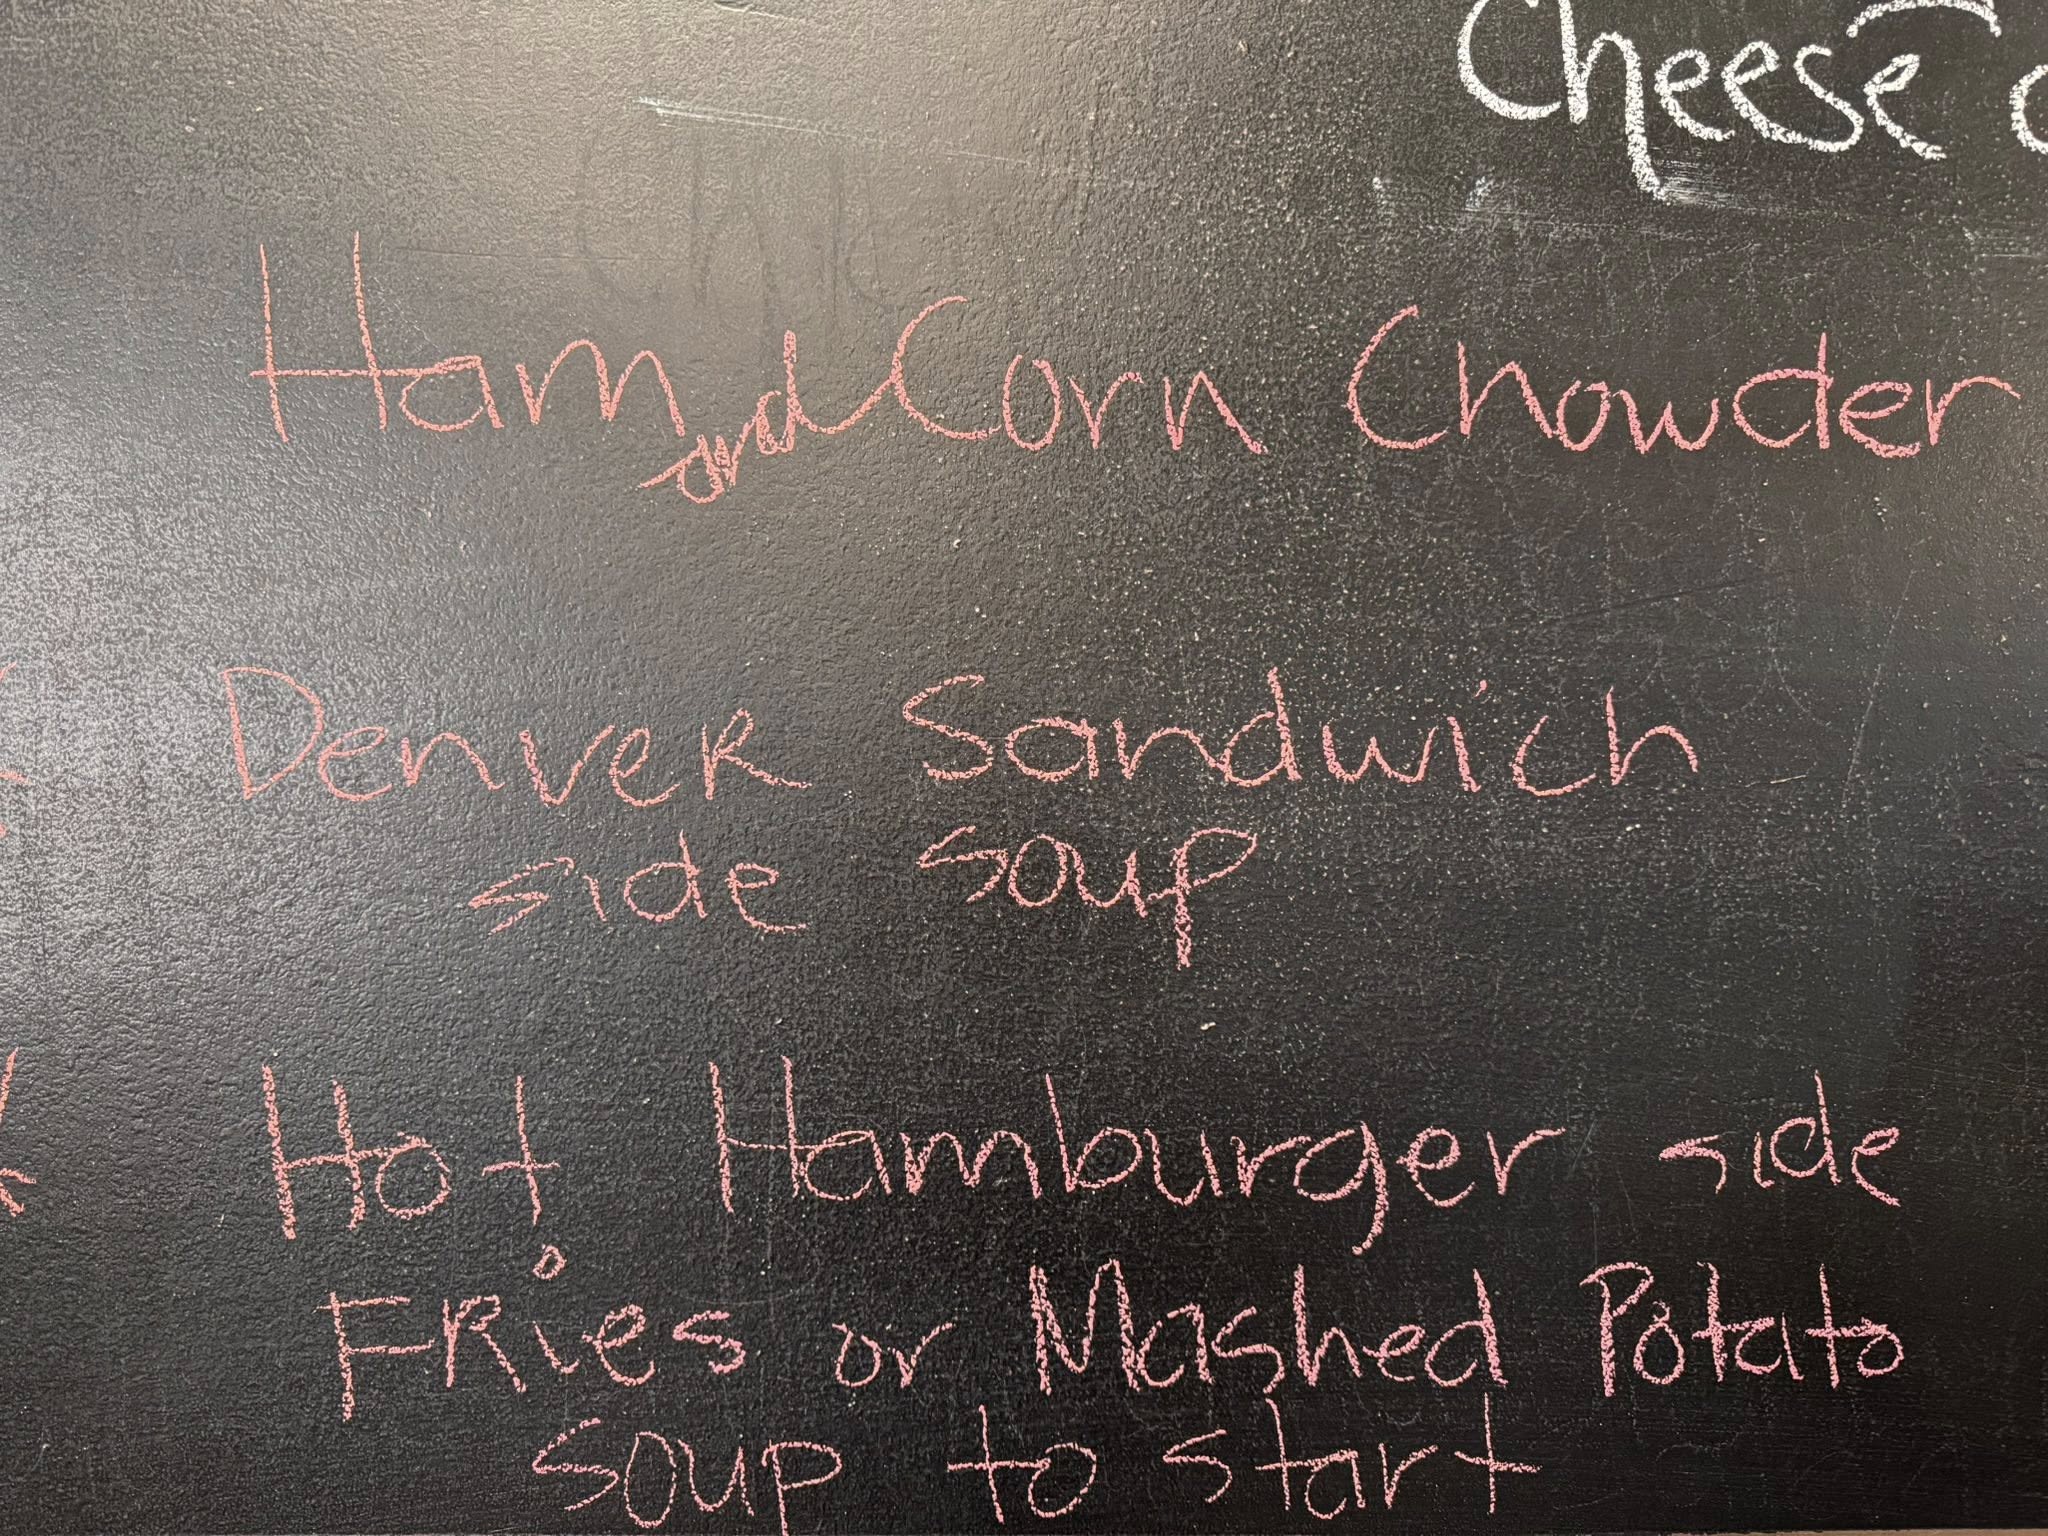 Cheese
Ham and Corn Chowder
Denver Sandwich
side soup
Hot Hamburger side
Fries or Mashed Potato
soup to start